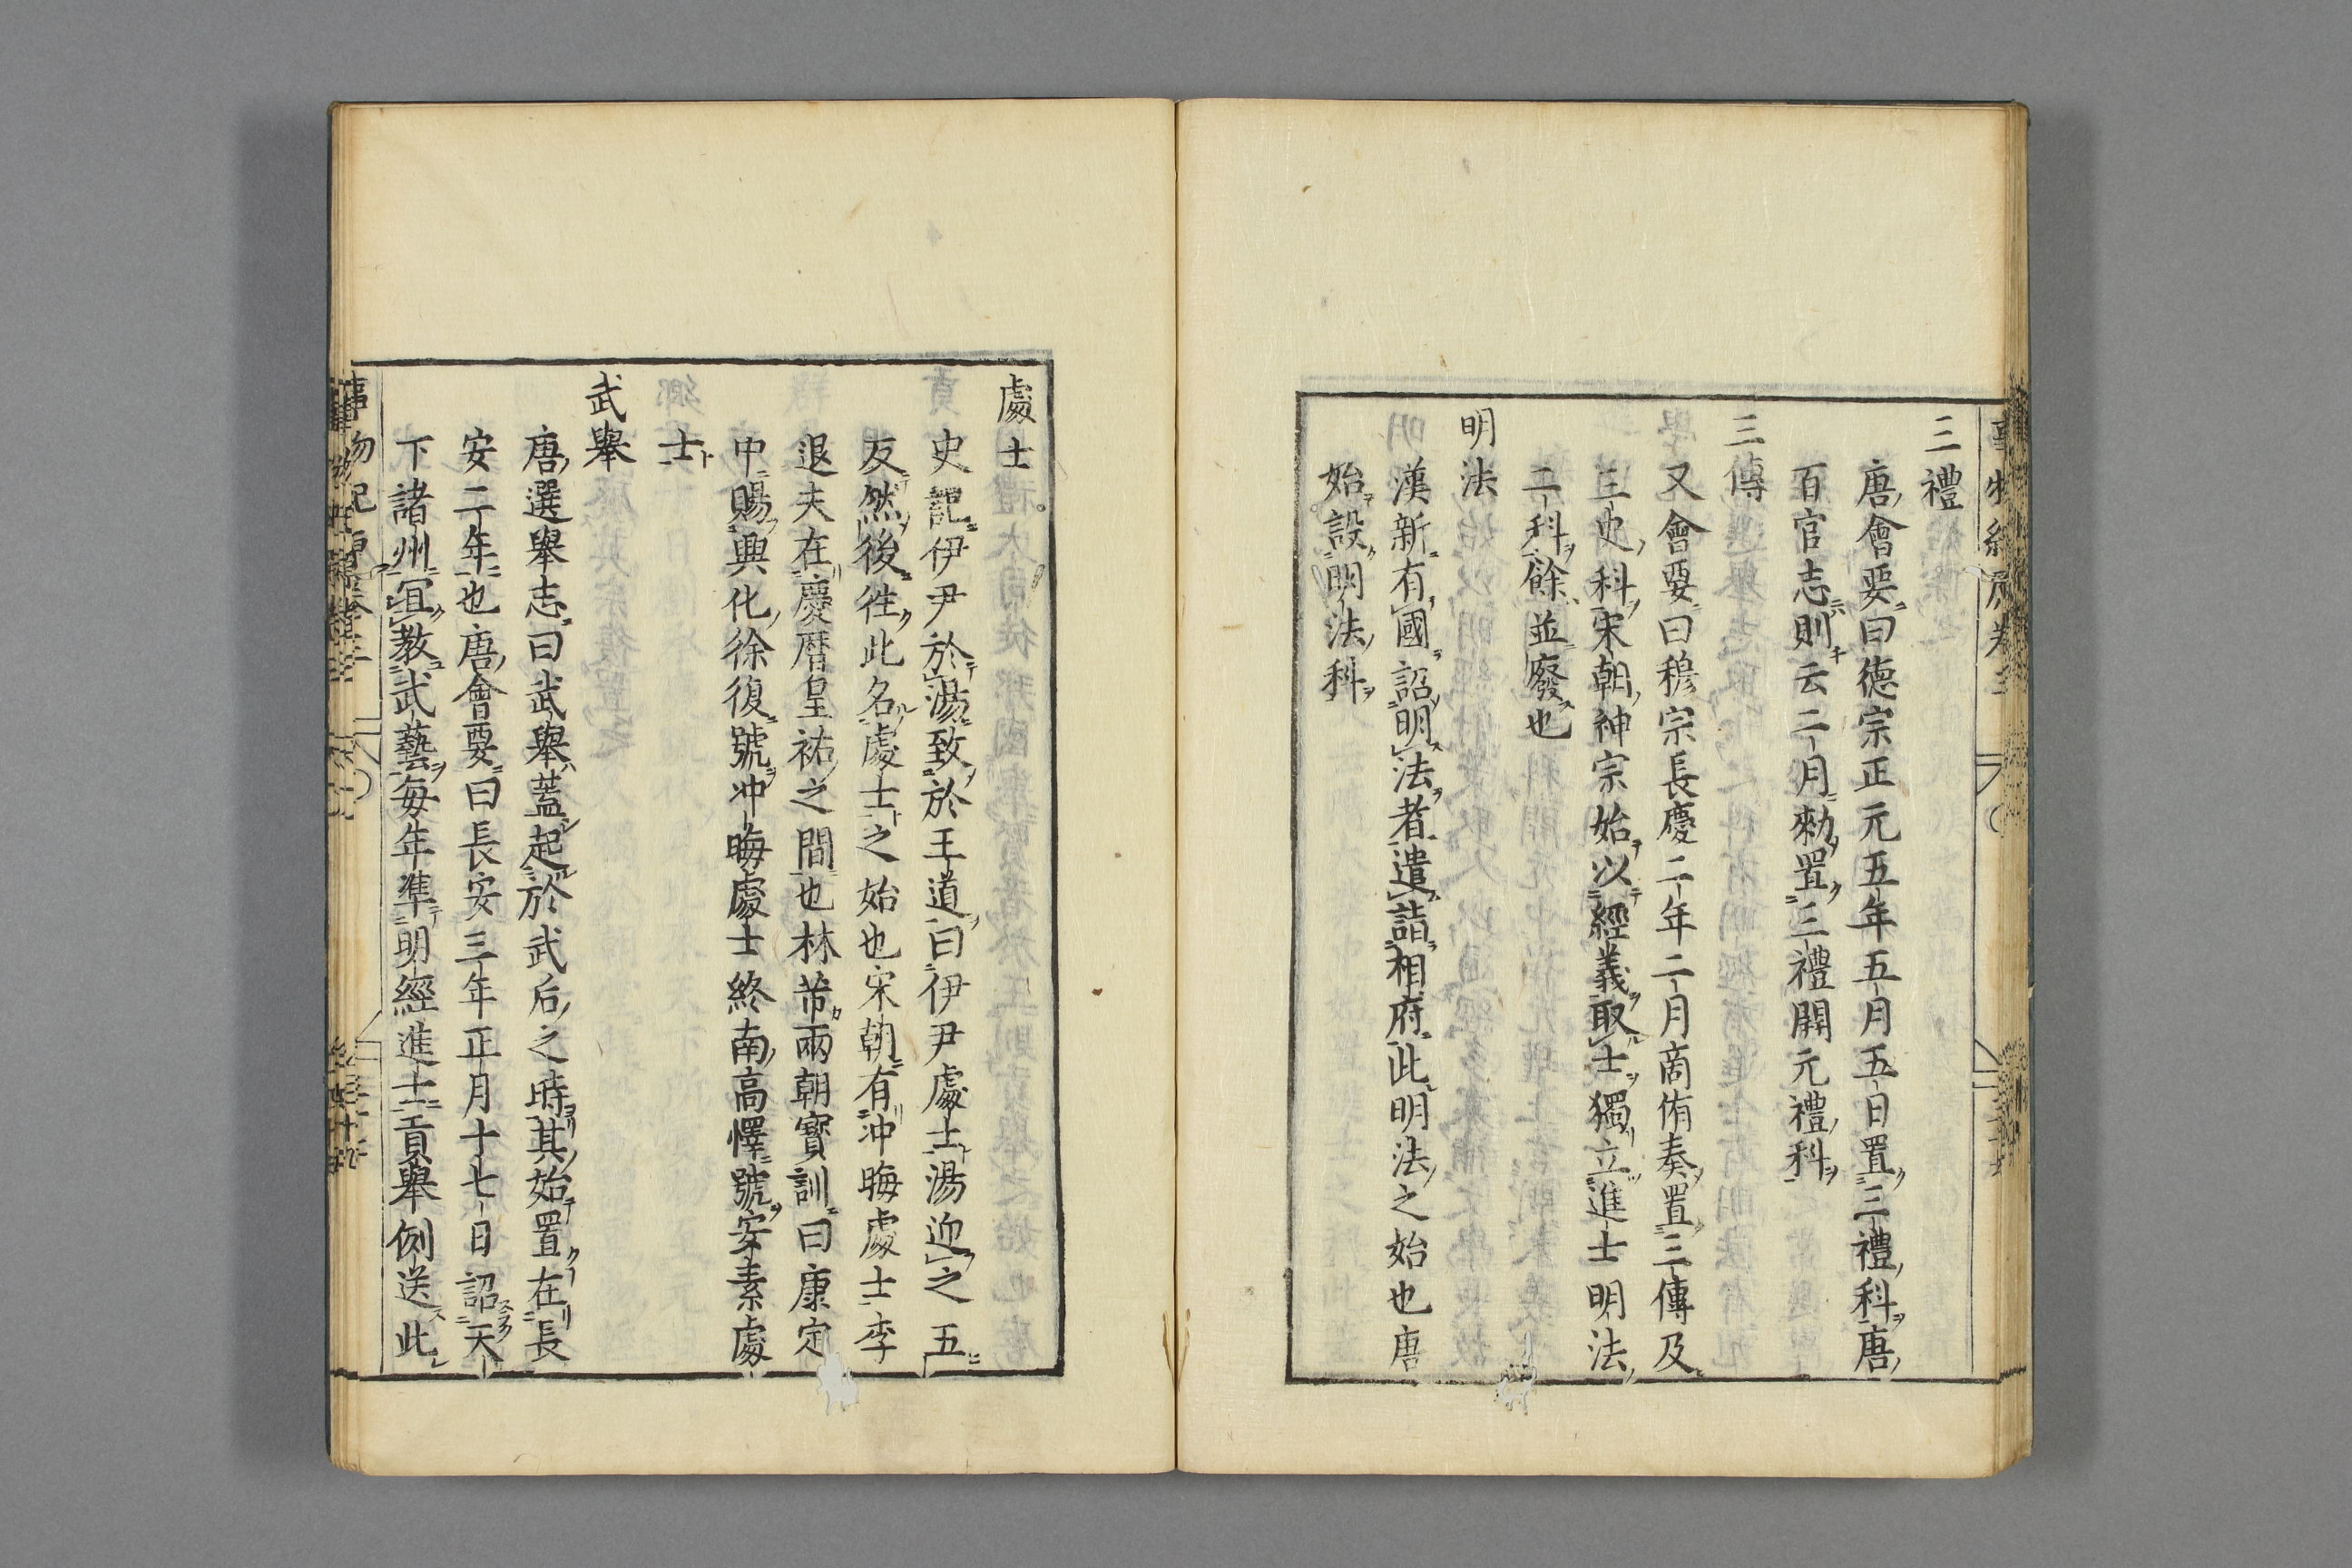 三禮
唐會要曰德宗正元五年五月五日置三禮科唐
百官志則云二月勑置三禮開元禮科
三傳
又會要曰穆宗長慶二年二月商侑奏置三傳及
三史科宋朝神宗始以經義取士獨立進士明法
二科餘並廢也
明法
漢新有國詔明法者遣詣相府此明法之始也唐
始設明法科
處士
史記伊尹於湯致於王道曰伊尹處士湯迎之五
反然後徃此名處士之始也宋朝有冲晦處士李
退夫在慶曆皇祐之間也林芾兩朝寶訓曰康定
中賜興化徐復號冲晦處士終南高懌號安素處
士
武舉
唐選舉志曰武舉蓋起於武后之時其始置在長
安二年也唐會要曰長安三年正月十七日詔天
下諸州宜教武藝每年準明經進士貢舉例送此